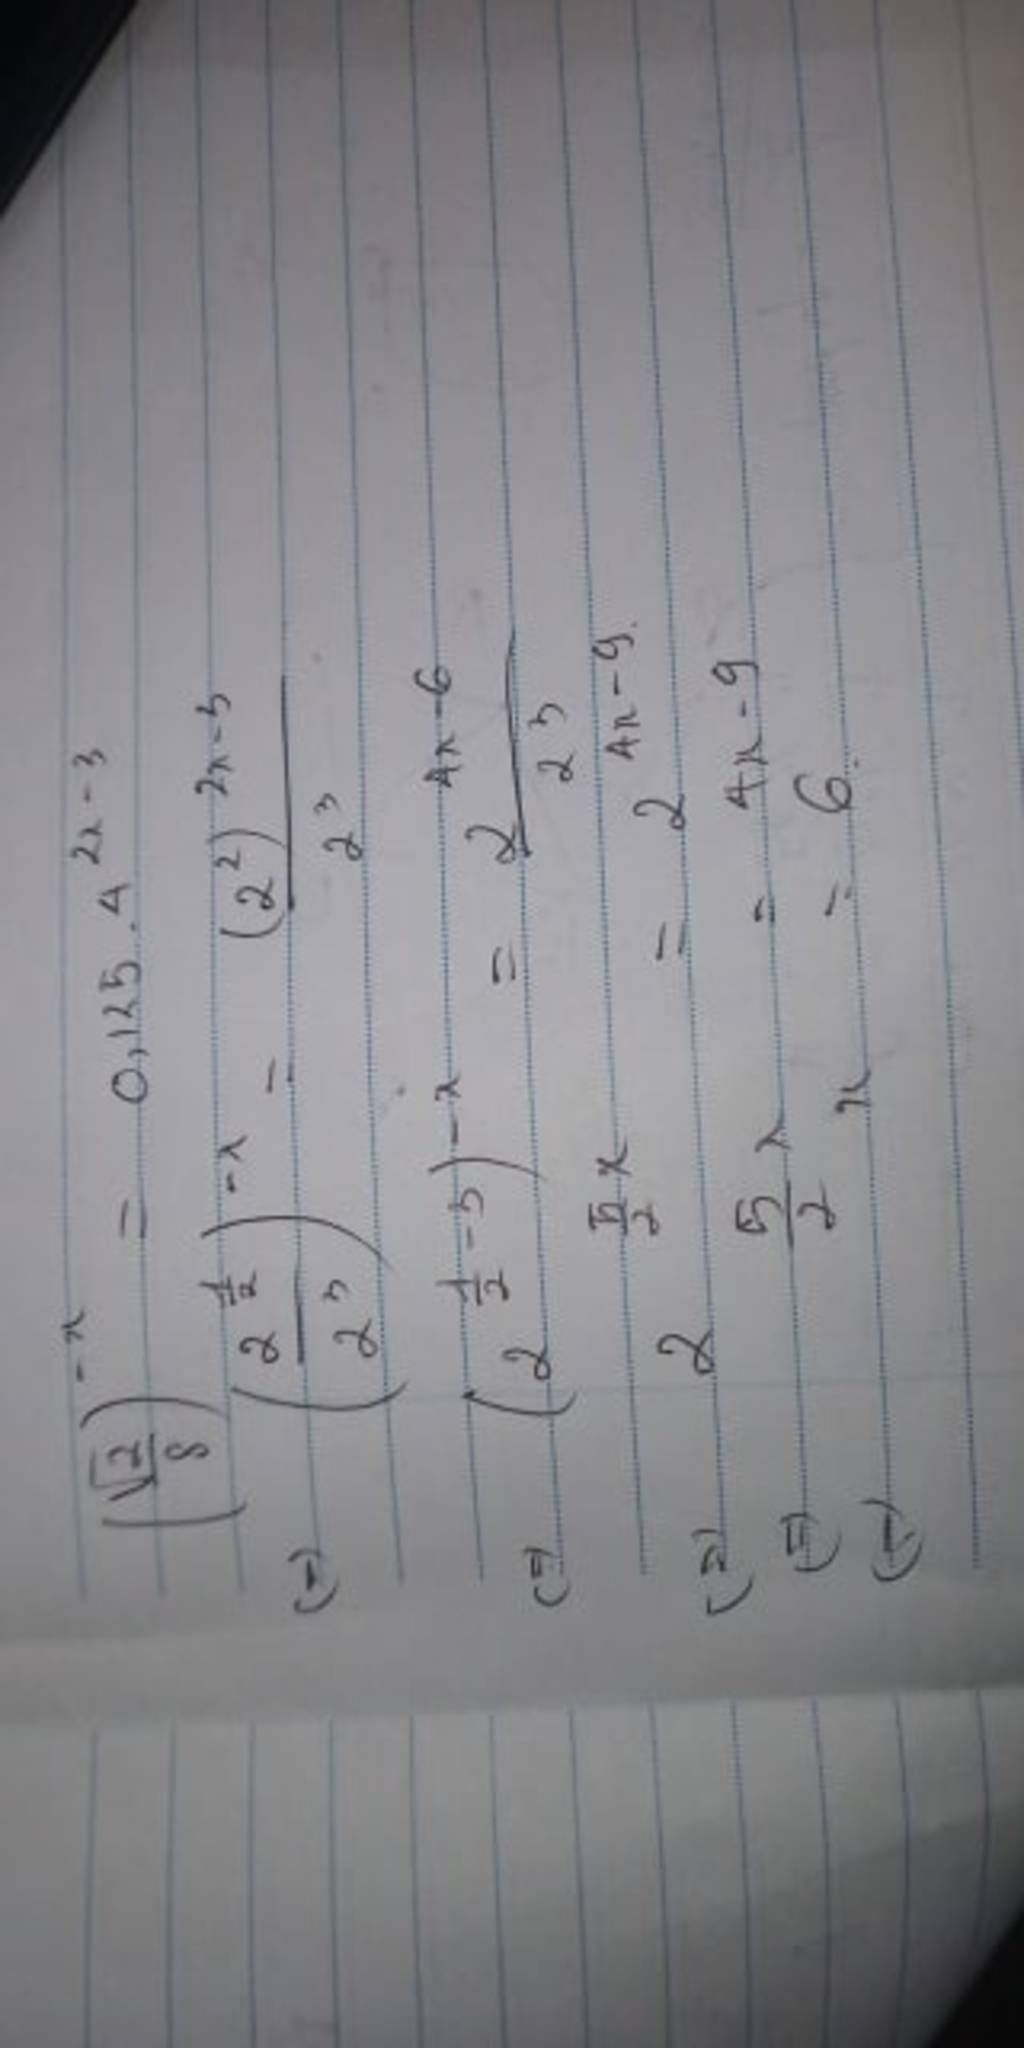 (√2/8)^-x = 0,125 . 4^2x-3
(–) (2^1/2 / 2^3)^-x = (2^2)^2x-3 / 2^3
(=) (2^1/2-3)^-x = 2^4x-6 / 2^3
(=) 2^5/2x = 2^4x-9.
(=) 5/2 x = 4x-9
(–) x = 6.